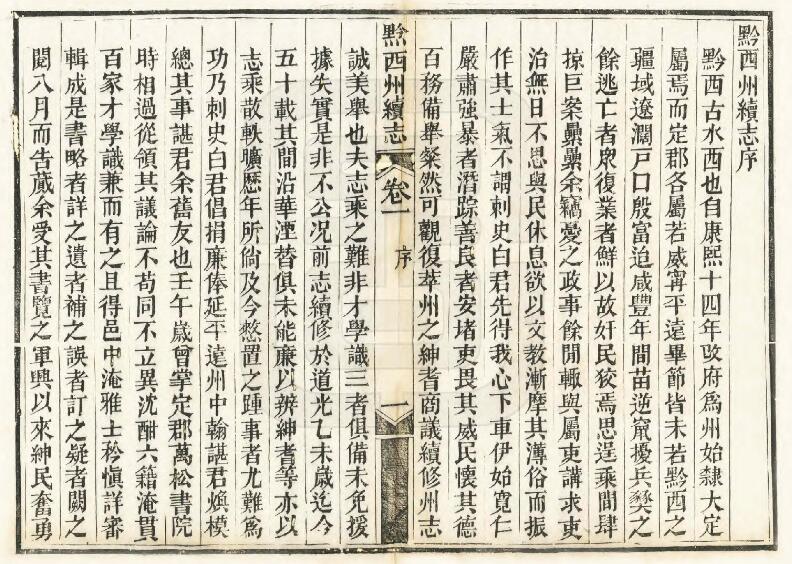 黔西州續志序
黔西古水西也自康熙十四年改府爲州始隸大定
屬焉而定郡各屬若威寧平遠畢節皆未若黔西之
疆域遼濶戸口殷富迨咸豐年間苗逆竄擾兵燹之
餘逃亡者衆復業者鮮以故奸民狡焉思逞乘間肆
掠巨案纍纍余竊憂之政事餘閒輙與屬吏講求吏
治無日不思與民休息欲以文教漸摩其溥俗而振
作其士氣不謂刺史白君先得我心下車伊始寛仁
嚴肅強暴者潛踪善良者安堵吏畏其威民懷其德
百務備舉粲然可觀復萃州之紳耆商議續修州志
黔西州續志
卷一
序
一
誠美舉也夫志乘之難非才學識三者俱備未免援
據失實是非不公况前志續修於道光乙未歲迄今
五十載其間沿革湮替俱未能亷以辨紳耆等亦以
志乘散軼曠歴年所倘及今憗置之踵事者尤難爲
功乃刺史白君倡捐廉俸延平遠州中翰諶君煥模
總其事諶君余舊友也壬午歲曾掌定郡萬松書院
時相過從領其議論不苟同不立異沈酣六籍淹貫
百家才學識兼而有之且得邑中淹雅士矜愼詳審
輯成是書略者詳之遺者補之誤者訂之疑者闕之
閱八月而告蕆余受其書覽之軍興以來紳民奮勇